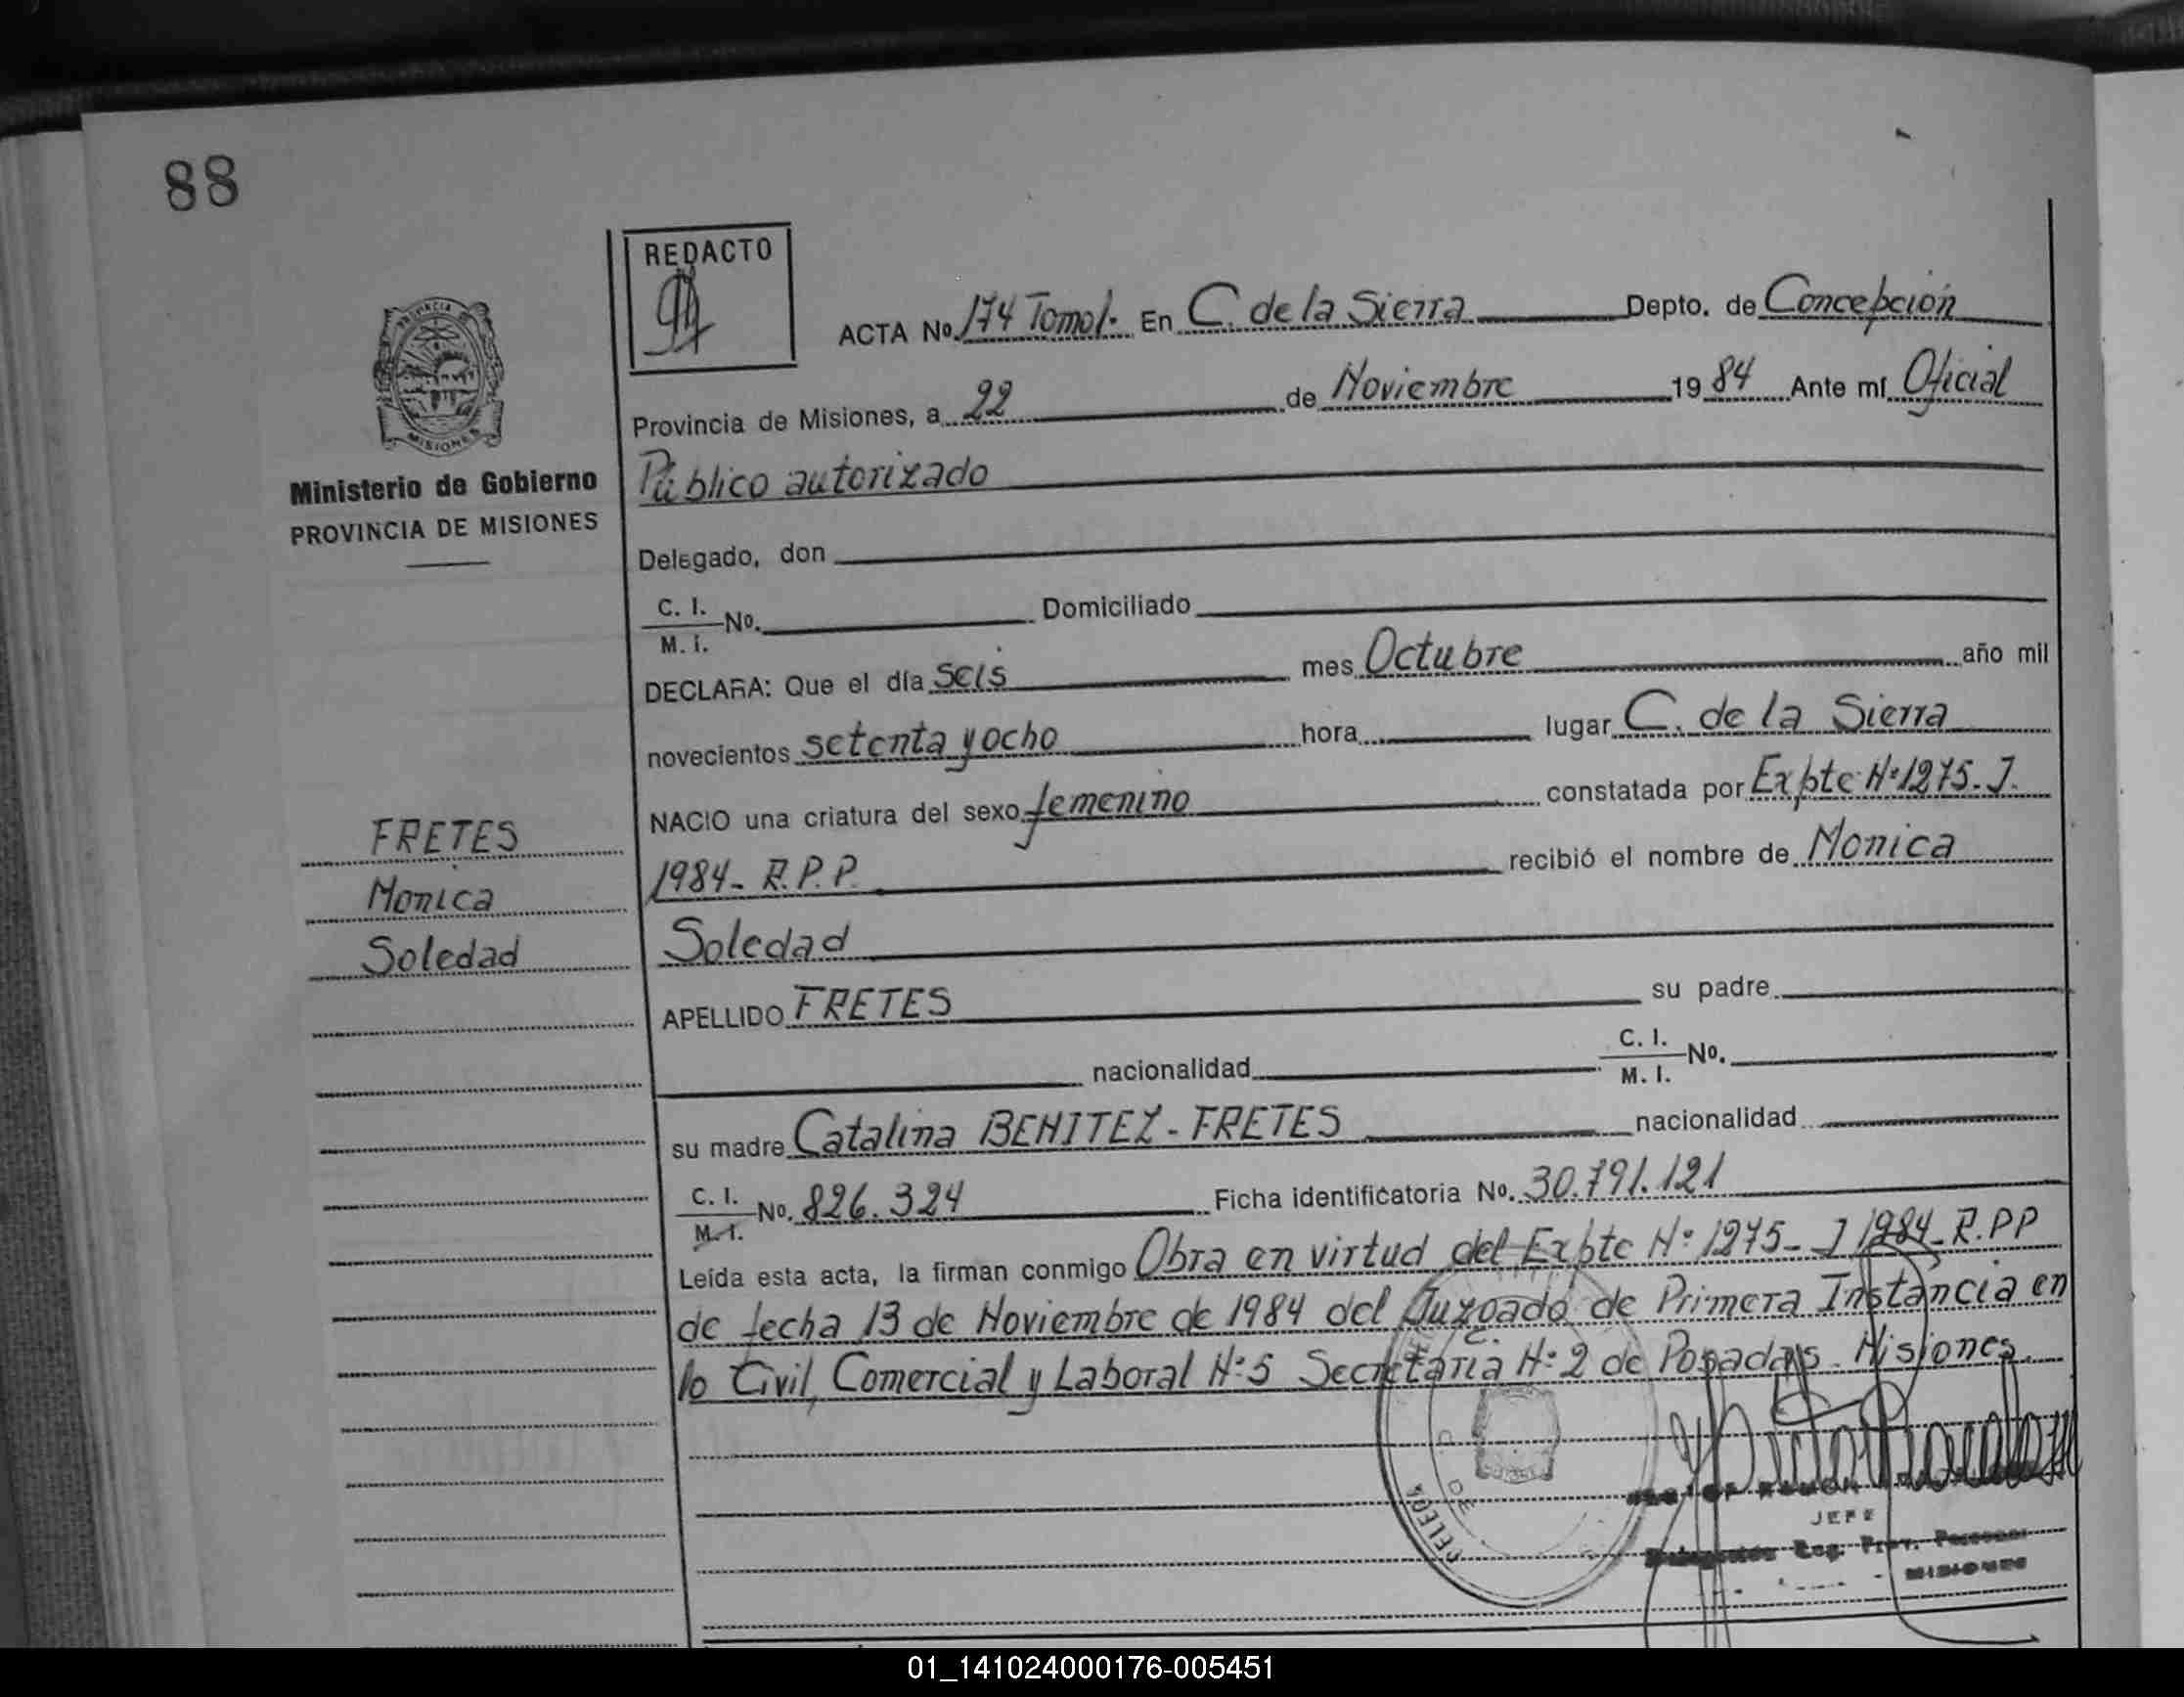 88
REDACTO
ACTA No. 174 Tomo I. En C. de la Sierra Depto. de Concepción
Provincia de Misiones, a 22 de Noviembre 1984 Ante mí Oficial
Público autorizado
PROVINCIA
MISIONES
Ministerio de Gobierno
PROVINCIA DE MISIONES
Delegado, don
C. I.
M. I. No. Domiciliado
DECLARA: Que el día seis mes Octubre año mil
novecientos setenta y ocho hora lugar C. de la Sierra
NACIO una criatura del sexo femenino constatada por Expte Nº 1275-J.
1984- R.P.P. recibió el nombre de Monica
Soledad
FRETES
Monica
Soledad
APELLIDO FRETES su padre
nacionalidad C. I.
M. I. No.
su madre Catalina BENITEZ - FRETES nacionalidad
C. I.
M. I. No. 826.324 Ficha identificatoria No. 30.791.121
Leída esta acta, la firman conmigo Obra en virtud del Expte Nº 1275- J 1984- R.PP
de fecha 13 de Noviembre de 1984 del Juzgado de Primera Instancia en
lo Civil, Comercial y Laboral Nº 5 Secretaria Nº 2 de Posadas. Misiones.
RAMON
JEFE
Reg. Prov. Personas
MISIONES
01_141024000176-005451